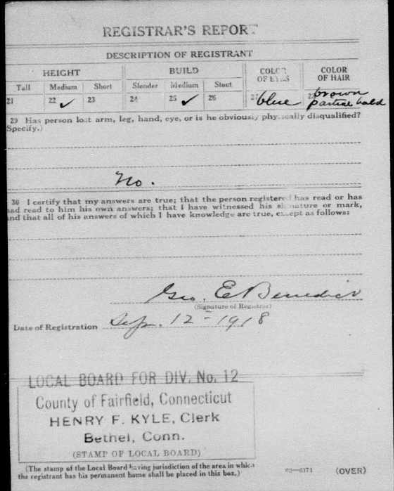 REGISTRAR'S REPORT
DESCRIPTION OF REGISTRANT
HEIGHT BUILD COLOR OF EYES COLOR OF HAIR
Tall Medium Short Slender Medium Stout
21 22 ✓ 23 24 25 ✓ 26 27 blue 28 brown partial bald
29 Has person lost arm, leg, hand, eye, or is he obviously physically disqualified?
Specify.)
No.
30 I certify that my answers are true; that the person registered has read or has
had read to him his own answers; that I have witnessed his signature or mark,
and that all of his answers of which I have knowledge are true, except as follows:
Geo. E. Benedict
(Signature of Registrar)
Date of Registration Sep. 12 - 1918
LOCAL BOARD FOR DIV. No. 12
County of Fairfield, Connecticut
HENRY F. KYLE, Clerk
Bethel, Conn.
(STAMP OF LOCAL BOARD)
(The stamp of the Local Board having jurisdiction of the area in which
the registrant has his permanent home shall be placed in this box.)
(OVER)